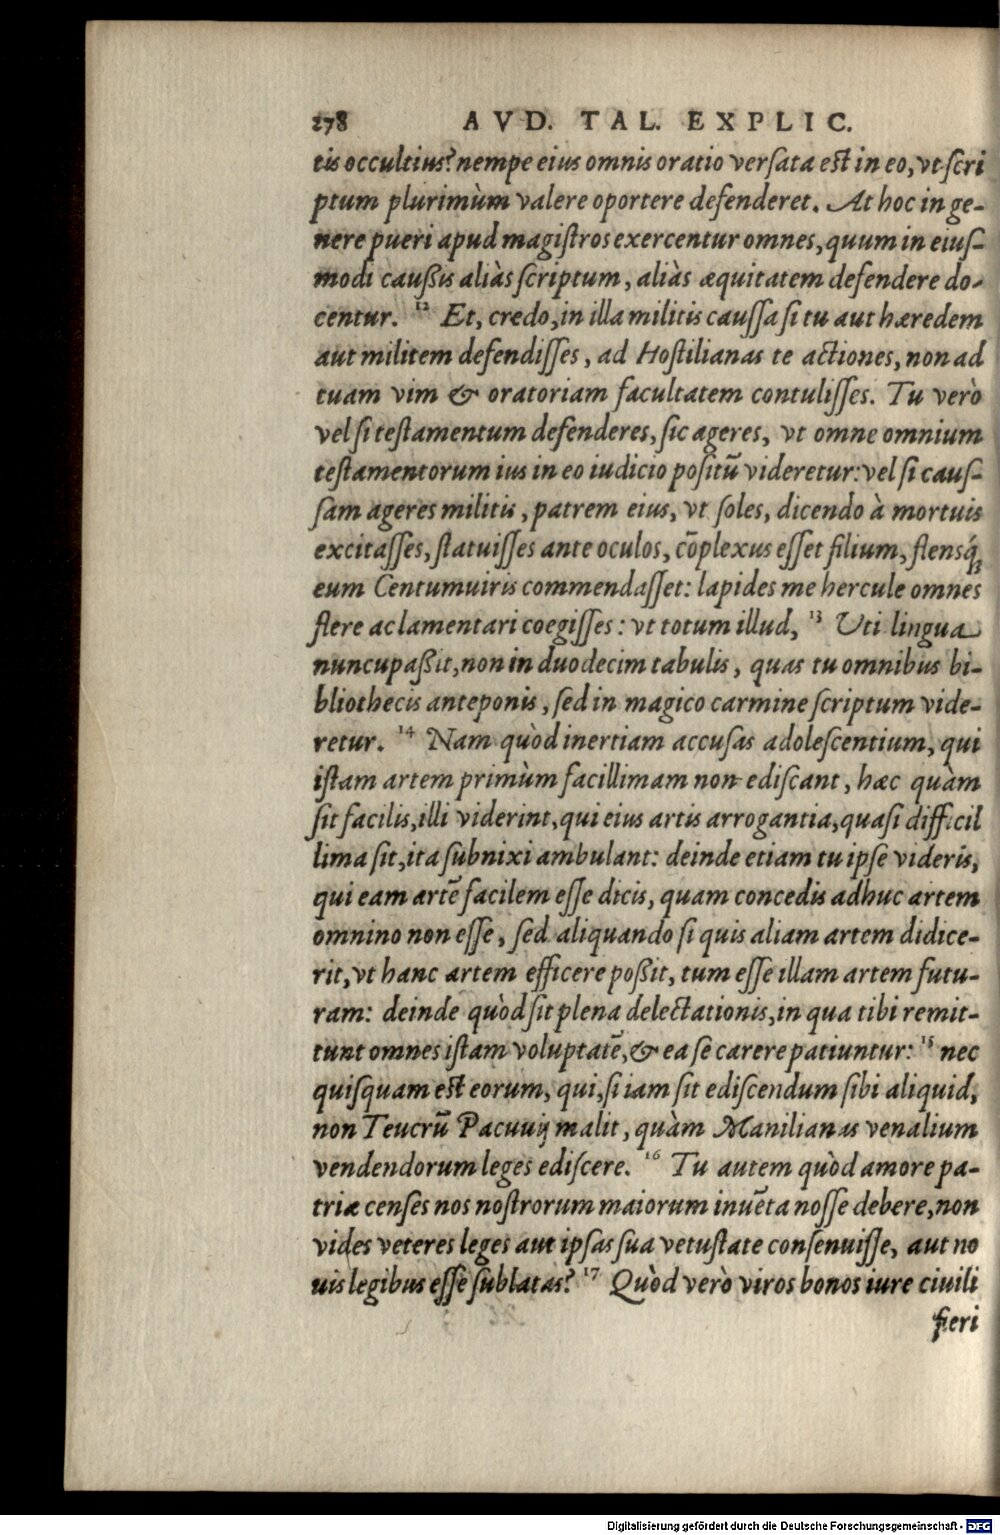 278 AVD. TAL. EXPLIC.
tis occultius? nempe eius omnis oratio versata est in eo, vt scri
ptum plurimùm valere oportere defenderet. At hoc in ge-
nere pueri apud magistros exercentur omnes, quum in eius-
modi caußis aliàs scriptum, aliàs æquitatem defendere do-
centur. 12 Et, credo, in illa militis caussa si tu aut hæredem
aut militem defendisses, ad Hostilianas te actiones, non ad
tuam vim & oratoriam facultatem contulisses. Tu verò
vel si testamentum defenderes, sic ageres, vt omne omnium
testamentorum ius in eo iudicio positũ videretur: vel si caus-
sam ageres militis, patrem eius, vt soles, dicendo à mortuis
excitasses, statuisses ante oculos, cõplexus esset filium, flensq́;
eum Centumuiris commendasset: lapides me hercule omnes
flere ac lamentari coegisses: vt totum illud, 13 Uti lingua
nuncupaßit, non in duodecim tabulis, quas tu omnibus bi-
bliothecis anteponis, sed in magico carmine scriptum vide-
retur. 14 Nam quòd inertiam accusas adolescentium, qui
istam artem primùm facillimam non ediscant, hæc quàm
sit facilis, illi viderint, qui eius artis arrogantia, quasi difficil
lima sit, ita subnixi ambulant: deinde etiam tu ipse videris,
qui eam artẽ facilem esse dicis, quam concedis adhuc artem
omnino non esse, sed aliquando si quis aliam artem didice-
rit, vt hanc artem efficere poßit, tum esse illam artem futu-
ram: deinde quòd sit plena delectationis, in qua tibi remit-
tunt omnes istam voluptatẽ, & ea se carere patiuntur: 15 nec
quisquam est eorum, qui, si iam sit ediscendum sibi aliquid,
non Teucrũ Pacuuij malit, quàm Manilianas venalium
vendendorum leges ediscere. 16 Tu autem quòd amore pa-
triæ censes nos nostrorum maiorum inuẽta nosse debere, non
vides veteres leges aut ipsas sua vetustate consenuisse, aut no
uis legibus esse sublatas? 17 Quòd verò viros bonos iure ciuili
fieri
Digitalisierung gefördert durch die Deutsche Forschungsgemeinschaft - DFG